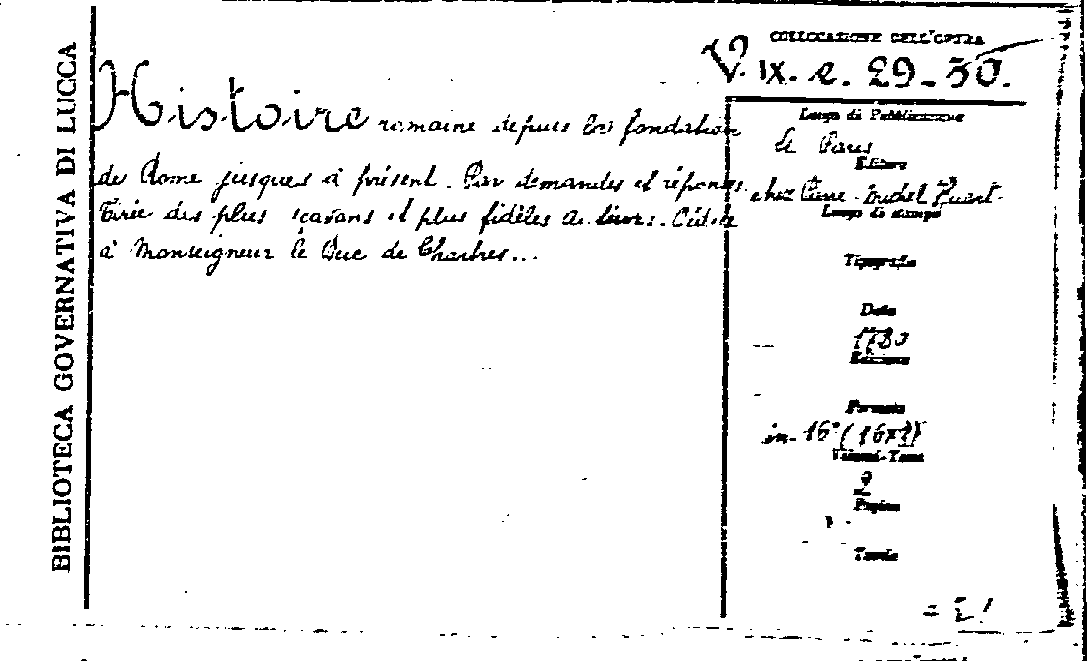 BIBLIOTECA GOVERNATIVA DI LUCCA
COLLOCAZIONE DELL'OPERA
V. IX. e. 29-30.
Histoire romaine depuis la fondation
de Rome jusques à présent. Par demandes et réponses.
Tirée des plus sçavans et plus fidèles
à Monseigneur le Duc de Chartres...
Luogo di Pubblicazione
à Paris
Editore
chez Huart
Luogo di stampa
Tipografia
Data
Edizione
Formato
in-16°
Volumi-Tomi
2
Pagine
Tavole